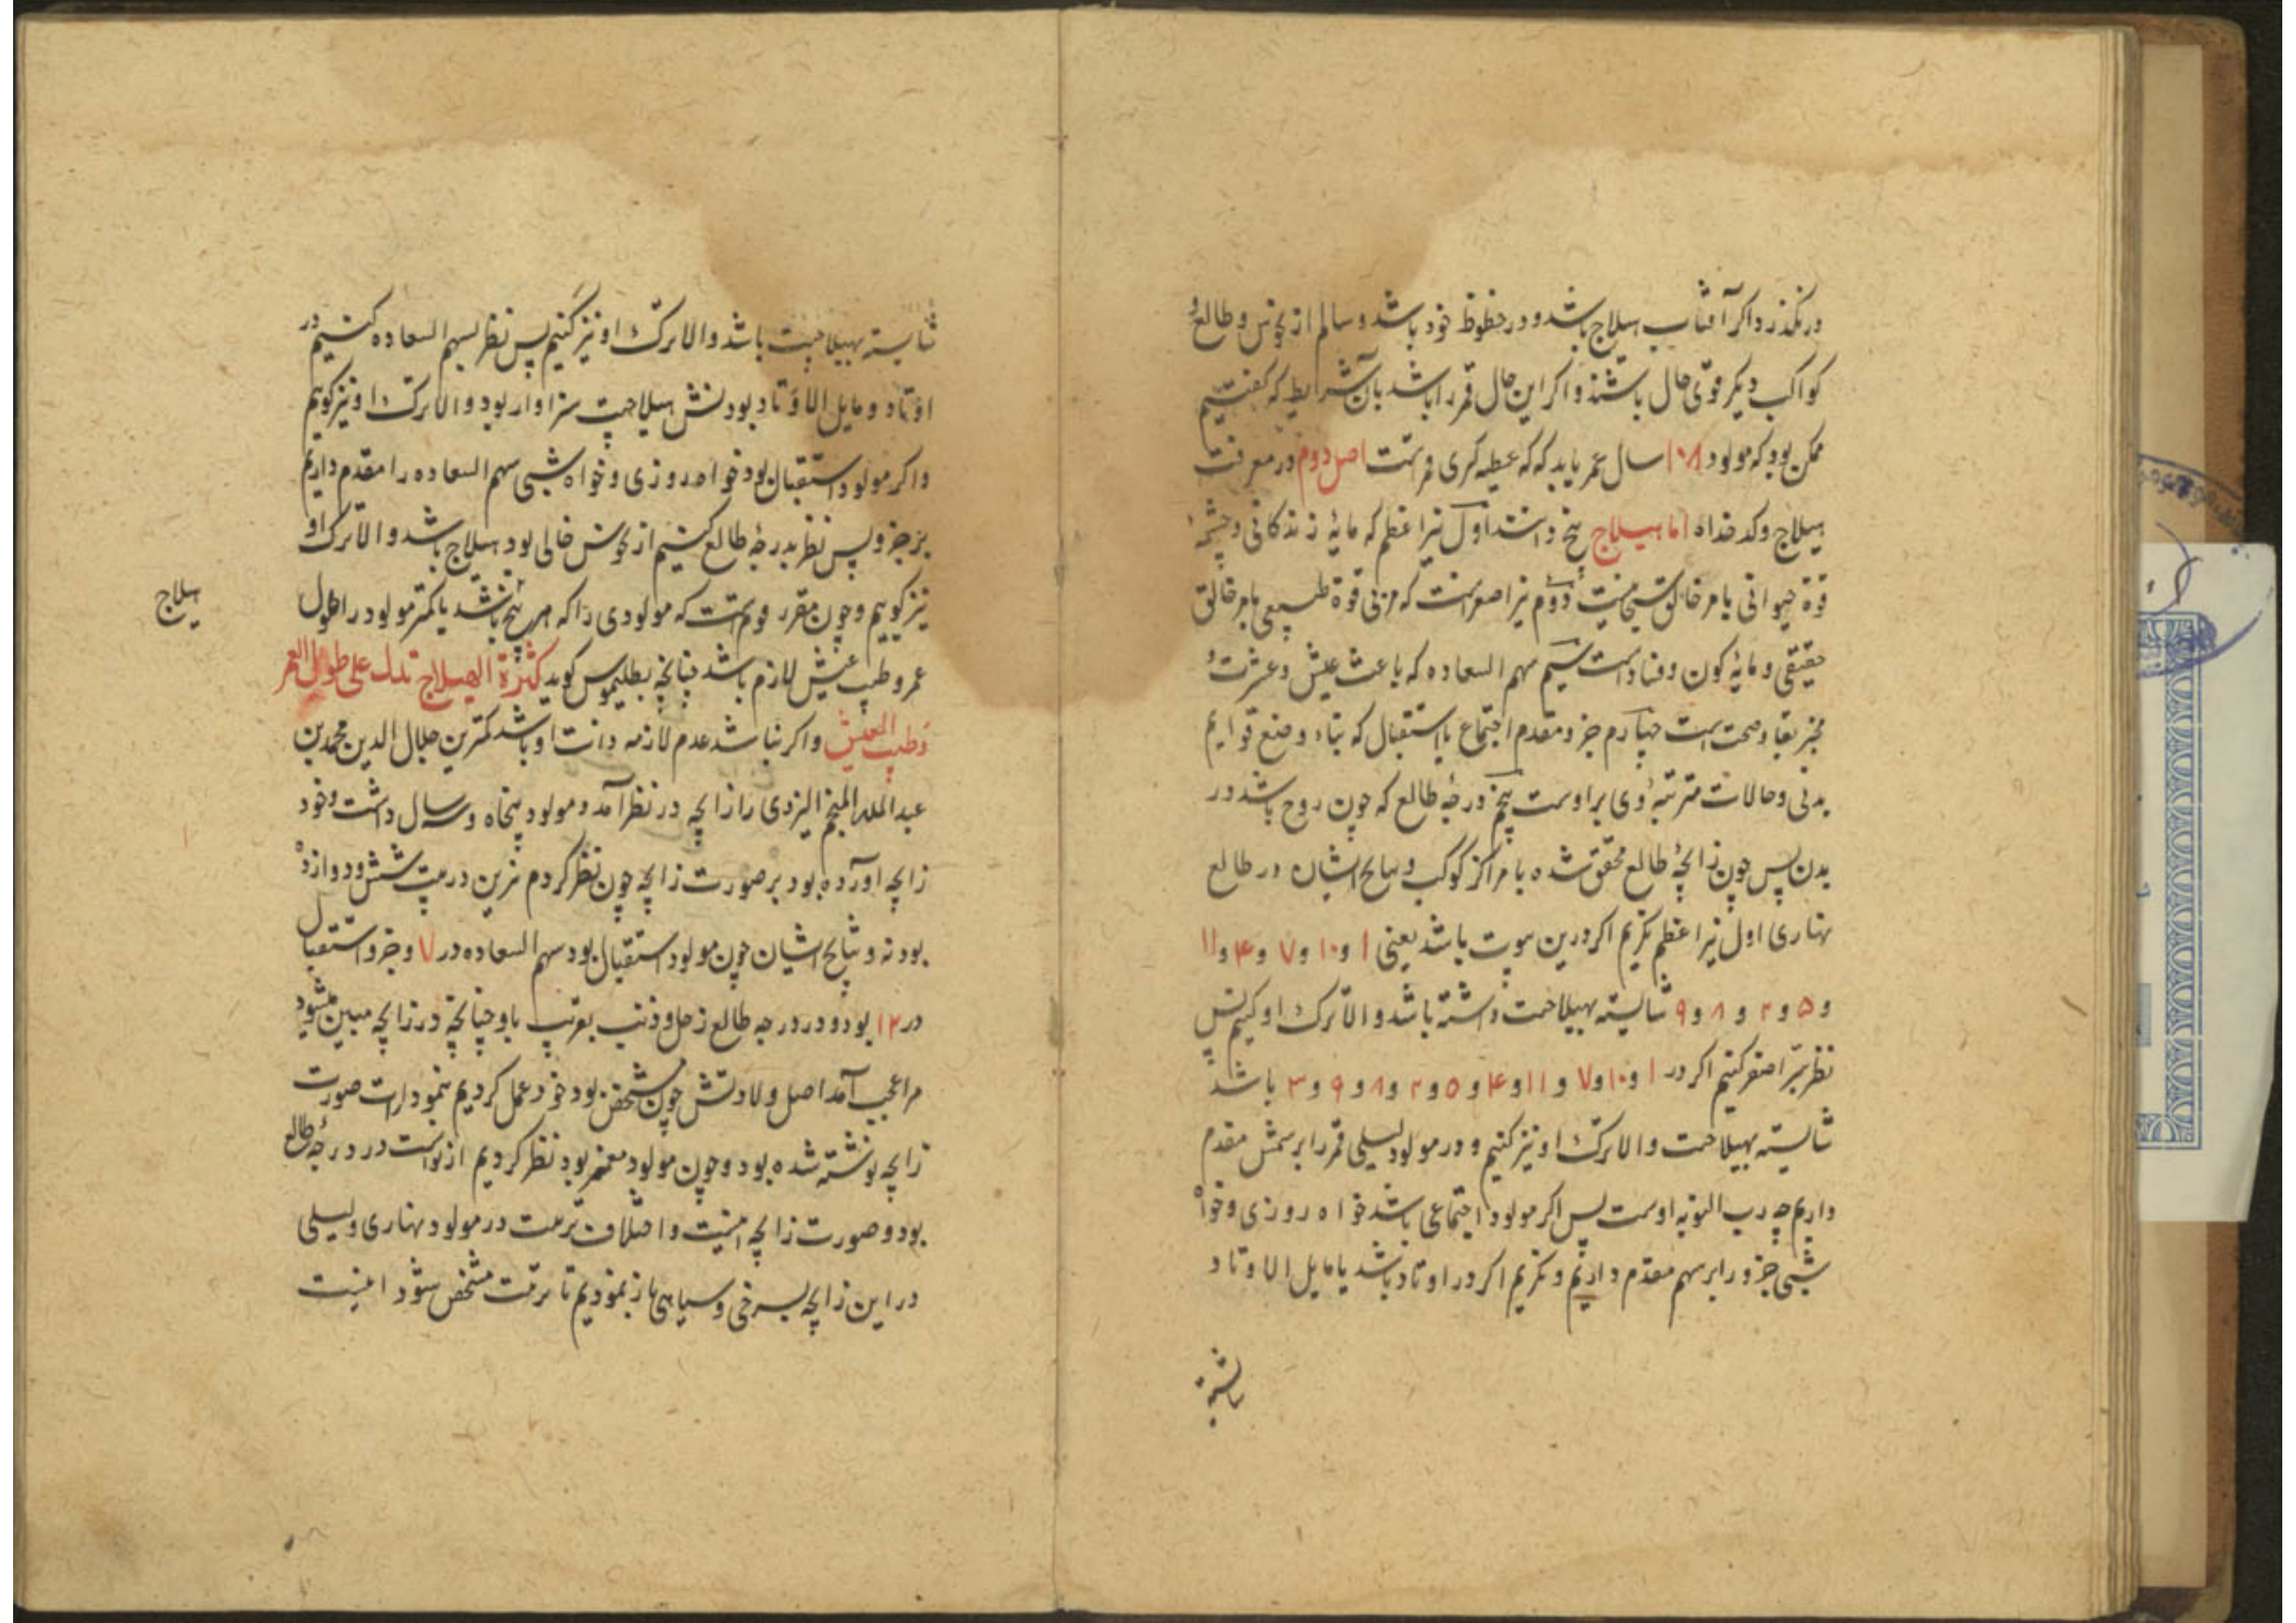 در نگذرد اگر آفتاب هیلاج باشد و در حظوظ خود باشد و سالم از نحوس و طالع و
کواکب دیگر قوی حال باشند و اگر این حال قمر را باشد بآن شرایط که گفتیم
ممکن بود که مولود ۱۰۸ سال عمر یابد که که عطیه کبری قمرست اصل دوم در معرفت
هیلاج و کدخداه اما هیلاج پنج دانند اول نیر اعظم که مایهٔ زندگانی و چشمهٔ
قوة حیوانی بامر خالق دوم نیر اصغرست که مربی قوة طبیعی بامر خالق
حقیقی و مایهٔ کون و فسادست سیم سهم السعاده که باعث عیش و عشرت و
مخبر بقا و صحت است چهارم جزو مقدم اجتماع یا استقبال که بناء وضع قوایم
بدنی و حالات مترتبهٔ وی بر اوست پنجم درجهٔ طالع که چون روح باشد در
بدن پس چون زایچهٔ طالع محقق شده با مراکز کوکب و ایشان در طالع
نهاری اول نیر اعظم نگریم اگر درین بیوت باشد یعنی ۱ و ۱۰ و ۷ و ۴ و ۱۱
و ۵ و ۲ و ۸ و ۹ شایسته بهیلاجیت داشته باشد و الا ترک او کنیم پس
نظر بنیر اصغر کنیم اگر در ۱ و ۱۰ و ۷ و ۱۱ و ۴ و ۵ و ۲ و ۸ و ۹ و ۳ باشد
شایسته بهیلاجیت و الا ترک او نیز کنیم و در مولود لیلی قمر را بر شمس مقدم
داریم چه رب النوبه اوست پس اگر مولود اجتماعی باشد خواه روزی و خواه
شبی جزو را بر سهم مقدم داریم و نگریم اگر در اوتاد باشد یا مایل الاوتاد
شایسته
شایسته بهیلاجیت باشد و الا ترک او نیز کنیم پس نظر بسهم السعاده کنیم در
اوتاد و مایل الاوتاد بودنش هیلاجیت سزاوار بود و الا ترک او نیز گوییم
و اگر مولود استقبال بود خواه روزی و خواه شبی سهم السعاده را مقدم داریم
بر جزو پس نظر بدرجهٔ طالع کنیم از نحوس خالی بود هیلاج باشد و الا ترک او
نیز گوییم و چون مقرر قومست که مولودی را که هر پنج باشد یا کمتر مولود را طول
هیلاج
عمر و طیب عیش لازم باشد چنانچه بطلیموس گوید کثرة الهیلاج تدل علی طول العمر
وطیب العیش و اگر نباشد عدم لازمه ذات او باشد کمترین جلال الدین محمد بن
عبدالله المنجم الیزدی را زایچه در نظر آمد و مولود پنجاه و سه سال داشت و خود
زایچه آورده بود بر صورت زایچه چون نظر کردم نیرین در بیت شش و دوازده
بودند و ایشان چون مولود استقبال بود سهم السعاده در ۷ و جزو استقبال
در ۱۲ بود و در درجه طالع زحل و ذنب بقرب باو چنانچه در زایچه مبین میشود
مرا عجب آمد اصل ولادتش چون مشخص بود خود عمل کردیم بنمودارات صورت
زایچه نوشته شده بود و چون مولود معمر بود نظر کردیم در درجهٔ طالع
بود و صورت زایچه اینست و اختلاف تربیت در مولود نهاری و لیلی
در این زایچه بسرخی و سیاهی باز نمودیم تا مشخص شود اینست